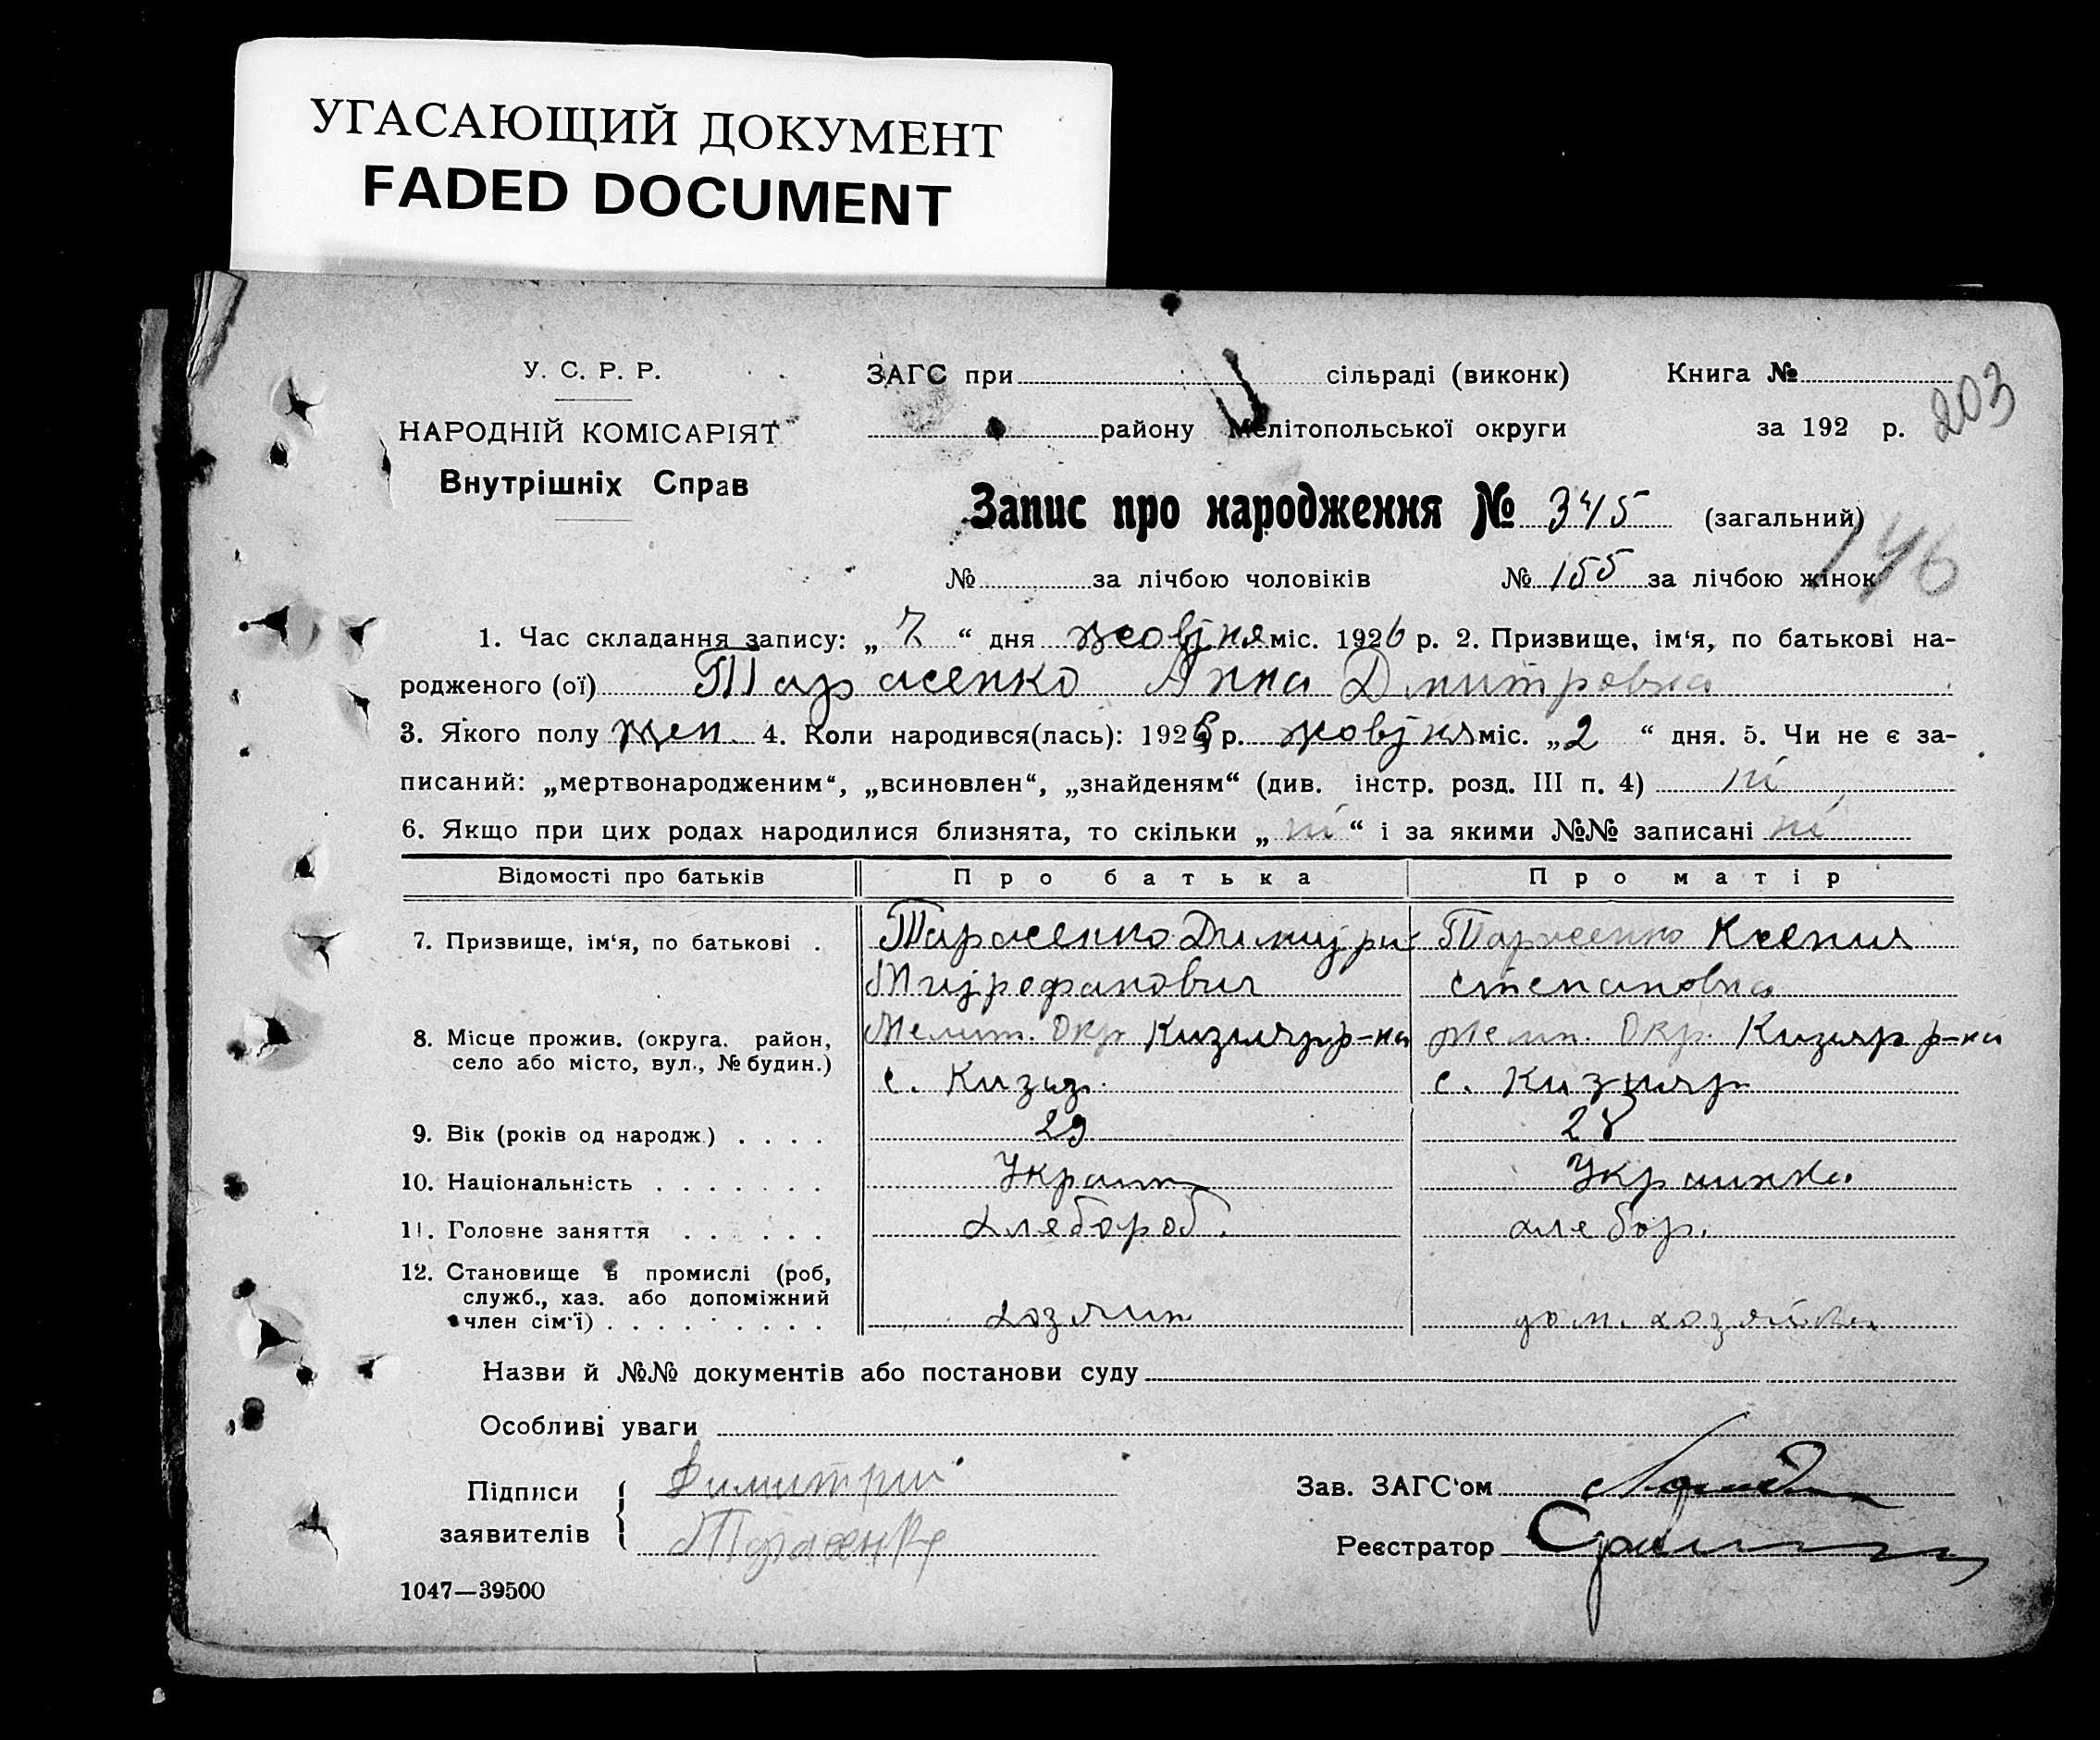 УГАСАЮЩИЙ ДОКУМЕНТ
FADED DOCUMENT
У. С. Р. Р.
НАРОДНІЙ КОМІСАРІЯТ
Внутрішніх Справ
ЗАГС при сільраді (виконк) Книга №
району Мелітопольської округи за 192 р.
203
Запис про народження № 345 (загальний)
146
№ за лічбою чоловіків № 155 за лічбою жінок
1. Час складання запису: „ 7 “ дня жовтня міс. 1926 р. 2. Призвище, ім‘я, по батькові на-
родженого (ої) Тарасенко Анна Дмитровна
3. Якого полу жен. 4. Коли народився(лась): 1926 р. жовтня міс. „2 “ дня. 5. Чи не є за-
писаний: „мертвонародженим“, „всиновлен“, „знайденям“ (див. інстр. розд. III п. 4) ні
6. Якщо при цих родах народилися близнята, то скільки „ ні “ і за якими №№ записані ні
Відомості про батьків Про батька Про матір
7. Призвище, ім‘я, по батькові . Тарасенко Димитри Тарасенко Ксения
Митрофанович Степановна
8. Місце прожив. (округа. район, Мелит. Окр. Кизияр р-на Мелит. Окр. Кизияр р-на
село або місто, вул., № будин.) с. Кизияр с. Кизияр
9. Вік (років од народж.) . . . . 29 28
10. Національність . . . . . . . Украин Украинка
11. Головне заняття . . . . . . хлебороб. хлебор.
12. Становище в промислі (роб,
служб., хаз. або допоміжний
член сім‘ї) . . . . . . . . . хозяин дом. хозяйка
Назви й №№ документів або постанови суду
Особливі уваги
Підписи Димитрий
заявителів Тарасенко
Зав. ЗАГС‘ом
Реєстратор
1047—39500